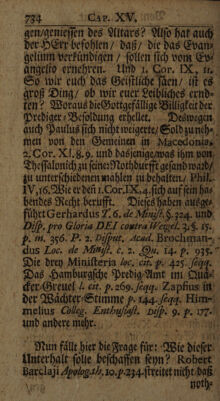 734 CAP. XV.
gen/geniessen des Altars? Also hat auch
der HErr befohlen/ daß/ die das Evan-
gelium verkündigen/ sollen sich vom Ev-
angelio ernehren. Und 1. Cor. IX, 11.
So wir euch das Geistliche säen/ ist es
groß Ding/ ob wir euer Leibliches ernd-
ten? Woraus die Gottgefällige Billigkeit der
Prediger-Besoldung erhellet. Deswegen
auch Paulus sich nicht weigerte/ Sold zu neh-
men von den Gemeinen in Macedonia.
2. Cor. XI, 8.9. und dasjenige, was ihm von
Thessalonich zu seiner Nothdurfft gesand ward/
zu unterschiedenen mahlen zu behalten/ Phil.
IV, 16. Wie er denn 1. Cor. IX, 4. sich auf sein ha-
bendes Recht berufft. Dieses haben ausge-
führt Gerhardus T. 6. de Minist. §. 224. und
Disp. pro Gloria DEI contra Weigel. 2. §. 15.
p. m. 356. P. 2. Disput. Acad. Brochman-
dus Loc. de Minist. c. 2. Qu. 14. p. 935.
Die drey Ministeria loc. cit. p. 425. seqq.
Das Hamburgsche Predig-Amt im Quä-
cker-Greuel l. cit. p. 269. seqq. Zapfius in
der Wächter-Stimme p. 144. seqq. Him-
melius Colleg. Enthusiast. Disp. 9. p. 177.
und andere mehr.
Nun fällt hier die Frage für: Wie dieser
Unterhalt solle beschaffen seyn? Robert
Barclaji Apolog. th. 10. p. 234. streitet nicht, daß
noth-